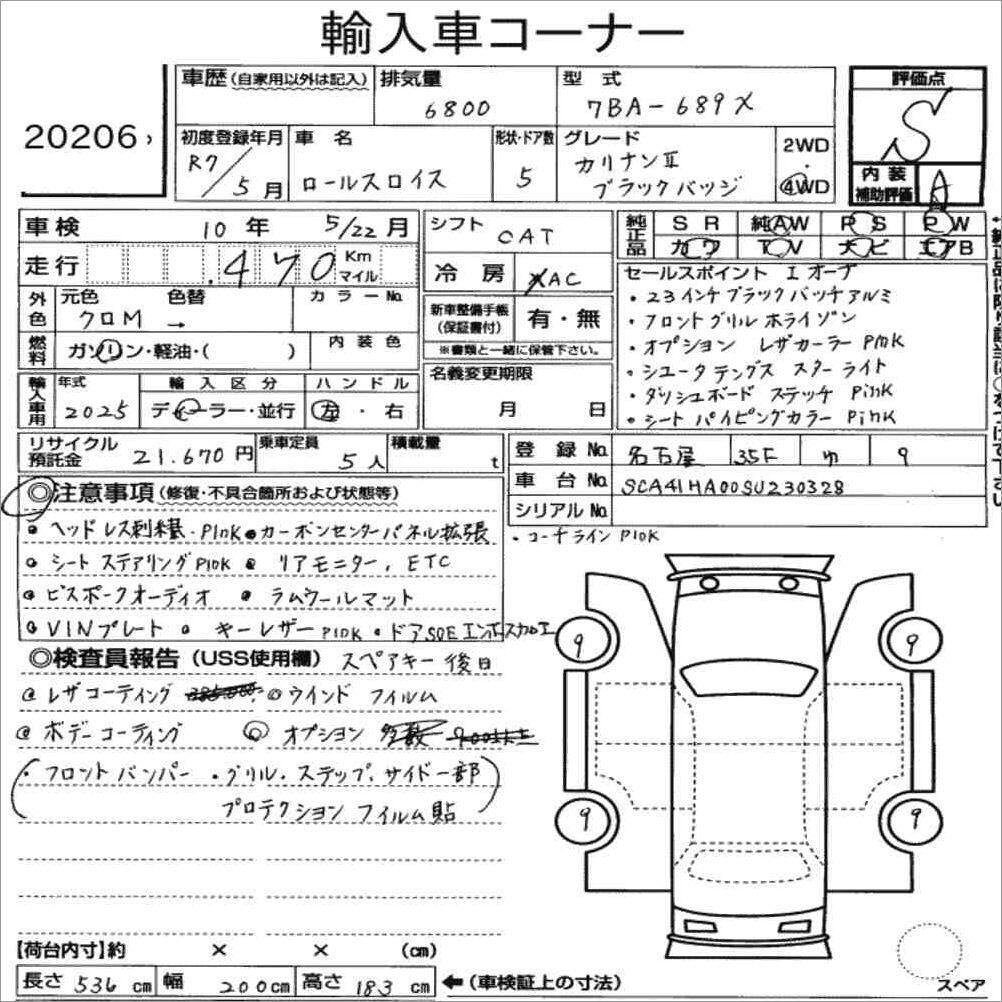 輸入車コーナー
20206
車歴 (自家用以外は記入) 排気量 型式 評価点
6800 7BA-689X S
初度登録年月 車名 形状・ドア数 グレード 2WD 内装補助評価 A
R7/5月 ロールスロイス 5 カリナンⅡ ブラックバッジ 4WD
車検 10年 5/22月 シフト CAT 純正品 SR 純AW PS PW
走行 .470 Km マイル 冷房 AC カワ TV ナビ エアB
外色 元色 色替 カラーNo. 新車整備手帳 (保証書付) 有・無
クロM →
※書類と一緒に保管下さい。
燃料 ガソリン・軽油・( ) 内装色
セールスポイント 1オーナ
・23インチブラックバッチアルミ
・フロントグリルホライゾン
・オプション レザカーラー Pink
・シュータテングス スターライト
・ダッシュボード ステッチ Pink
・シートパイピングカラー Pink
輸入車用 年式 輸入区分 ハンドル 名義変更期限
2025 ディーラー・並行 左・右 月 日
リサイクル預託金 21.670円 乗車定員 5人 積載量 t
登録No. 名古屋 35F ゆ 9
車台No. SCA41HA00SU230328
シリアルNo.
◎注意事項 (修復・不具合箇所および状態等)
・ヘッドレス刺繍・Pink ・カーボンセンターパネル拡張 ・コーチラインPink
・シートステアリングPink ・リアモニター、ETC
・ビスポークオーディオ ・ラムウールマット
・VINプレート ・キーレザーPink ・ドアSOEエンボス加工
◎検査員報告 (USS使用欄) スペアキー後日
◎レザコーティング ◎ウインドフィルム
◎ボデーコーティング ◎オプション 多数
(・フロントバンパー・グリル・ステップ、サイド一部
プロテクションフィルム貼)
9 9
9 9
【荷台内寸】約 × × (cm)
長さ 536cm 幅 200cm 高さ 183cm ←(車検証上の寸法) スペア